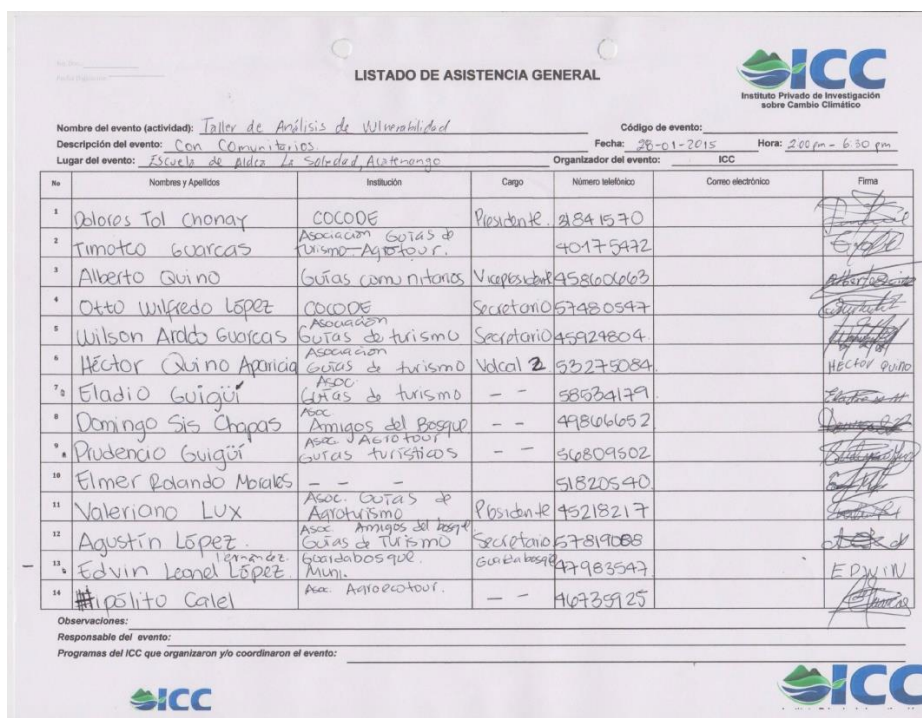 LISTADO DE ASISTENCIA GENERAL
ICC
Instituto Privado de Investigación
sobre Cambio Climático
Nombre del evento (actividad): Taller de Análisis de Vulnerabilidad Código de evento:
Descripción del evento: Con Comunitarios. Fecha: 28-01-2015 Hora: 2:00 pm - 6:30 pm
Lugar del evento: Escuela de Aldea La Soledad, Acatenango Organizador del evento: ICC
No Nombres y Apellidos Institución Cargo Número telefónico Correo electrónico Firma
1 Dolores Tol Chonay COCODE Presidente. 31841570
2 Timoteo Guarcas Asociación Guías de turismo-Agrotour. 40175472
3 Alberto Quino Guías comunitarios Vicepresidente 45860663
4 Otto Wilfredo López COCODE Secretario 57480547
5 Wilson Araldo Guarcas Asociación Guías de turismo Secretario 45924804
6 Héctor Quino Aparicia Asociación Guías de turismo Volcal 2 53275084 HÉCTOR QUINO
7 Eladio Guigüí Asoc. Guías de turismo - - 58534179
8 Domingo Sis Chapas Asoc Amigos del Bosque - - 49866652
9 Prudencio Guigüí Asoc. Agrotour Guías turísticos - - 56809502
10 Elmer Rolando Morales - - - 51820540
11 Valeriano Lux Asoc. Guías de Agroturismo Presidente 45218217
12 Agustín López. Asoc Amigos del bosque Guías de Turismo Secretario 57819088
13 Edvin Leonel Fernández López. Guardabosque. Muni. Guardabosque 47983547 EDWIN
14 Hipólito Calel Asoc. Agroecotour. - - 46735925
Observaciones:
Responsable del evento:
Programas del ICC que organizaron y/o coordinaron el evento:
ICC
ICC